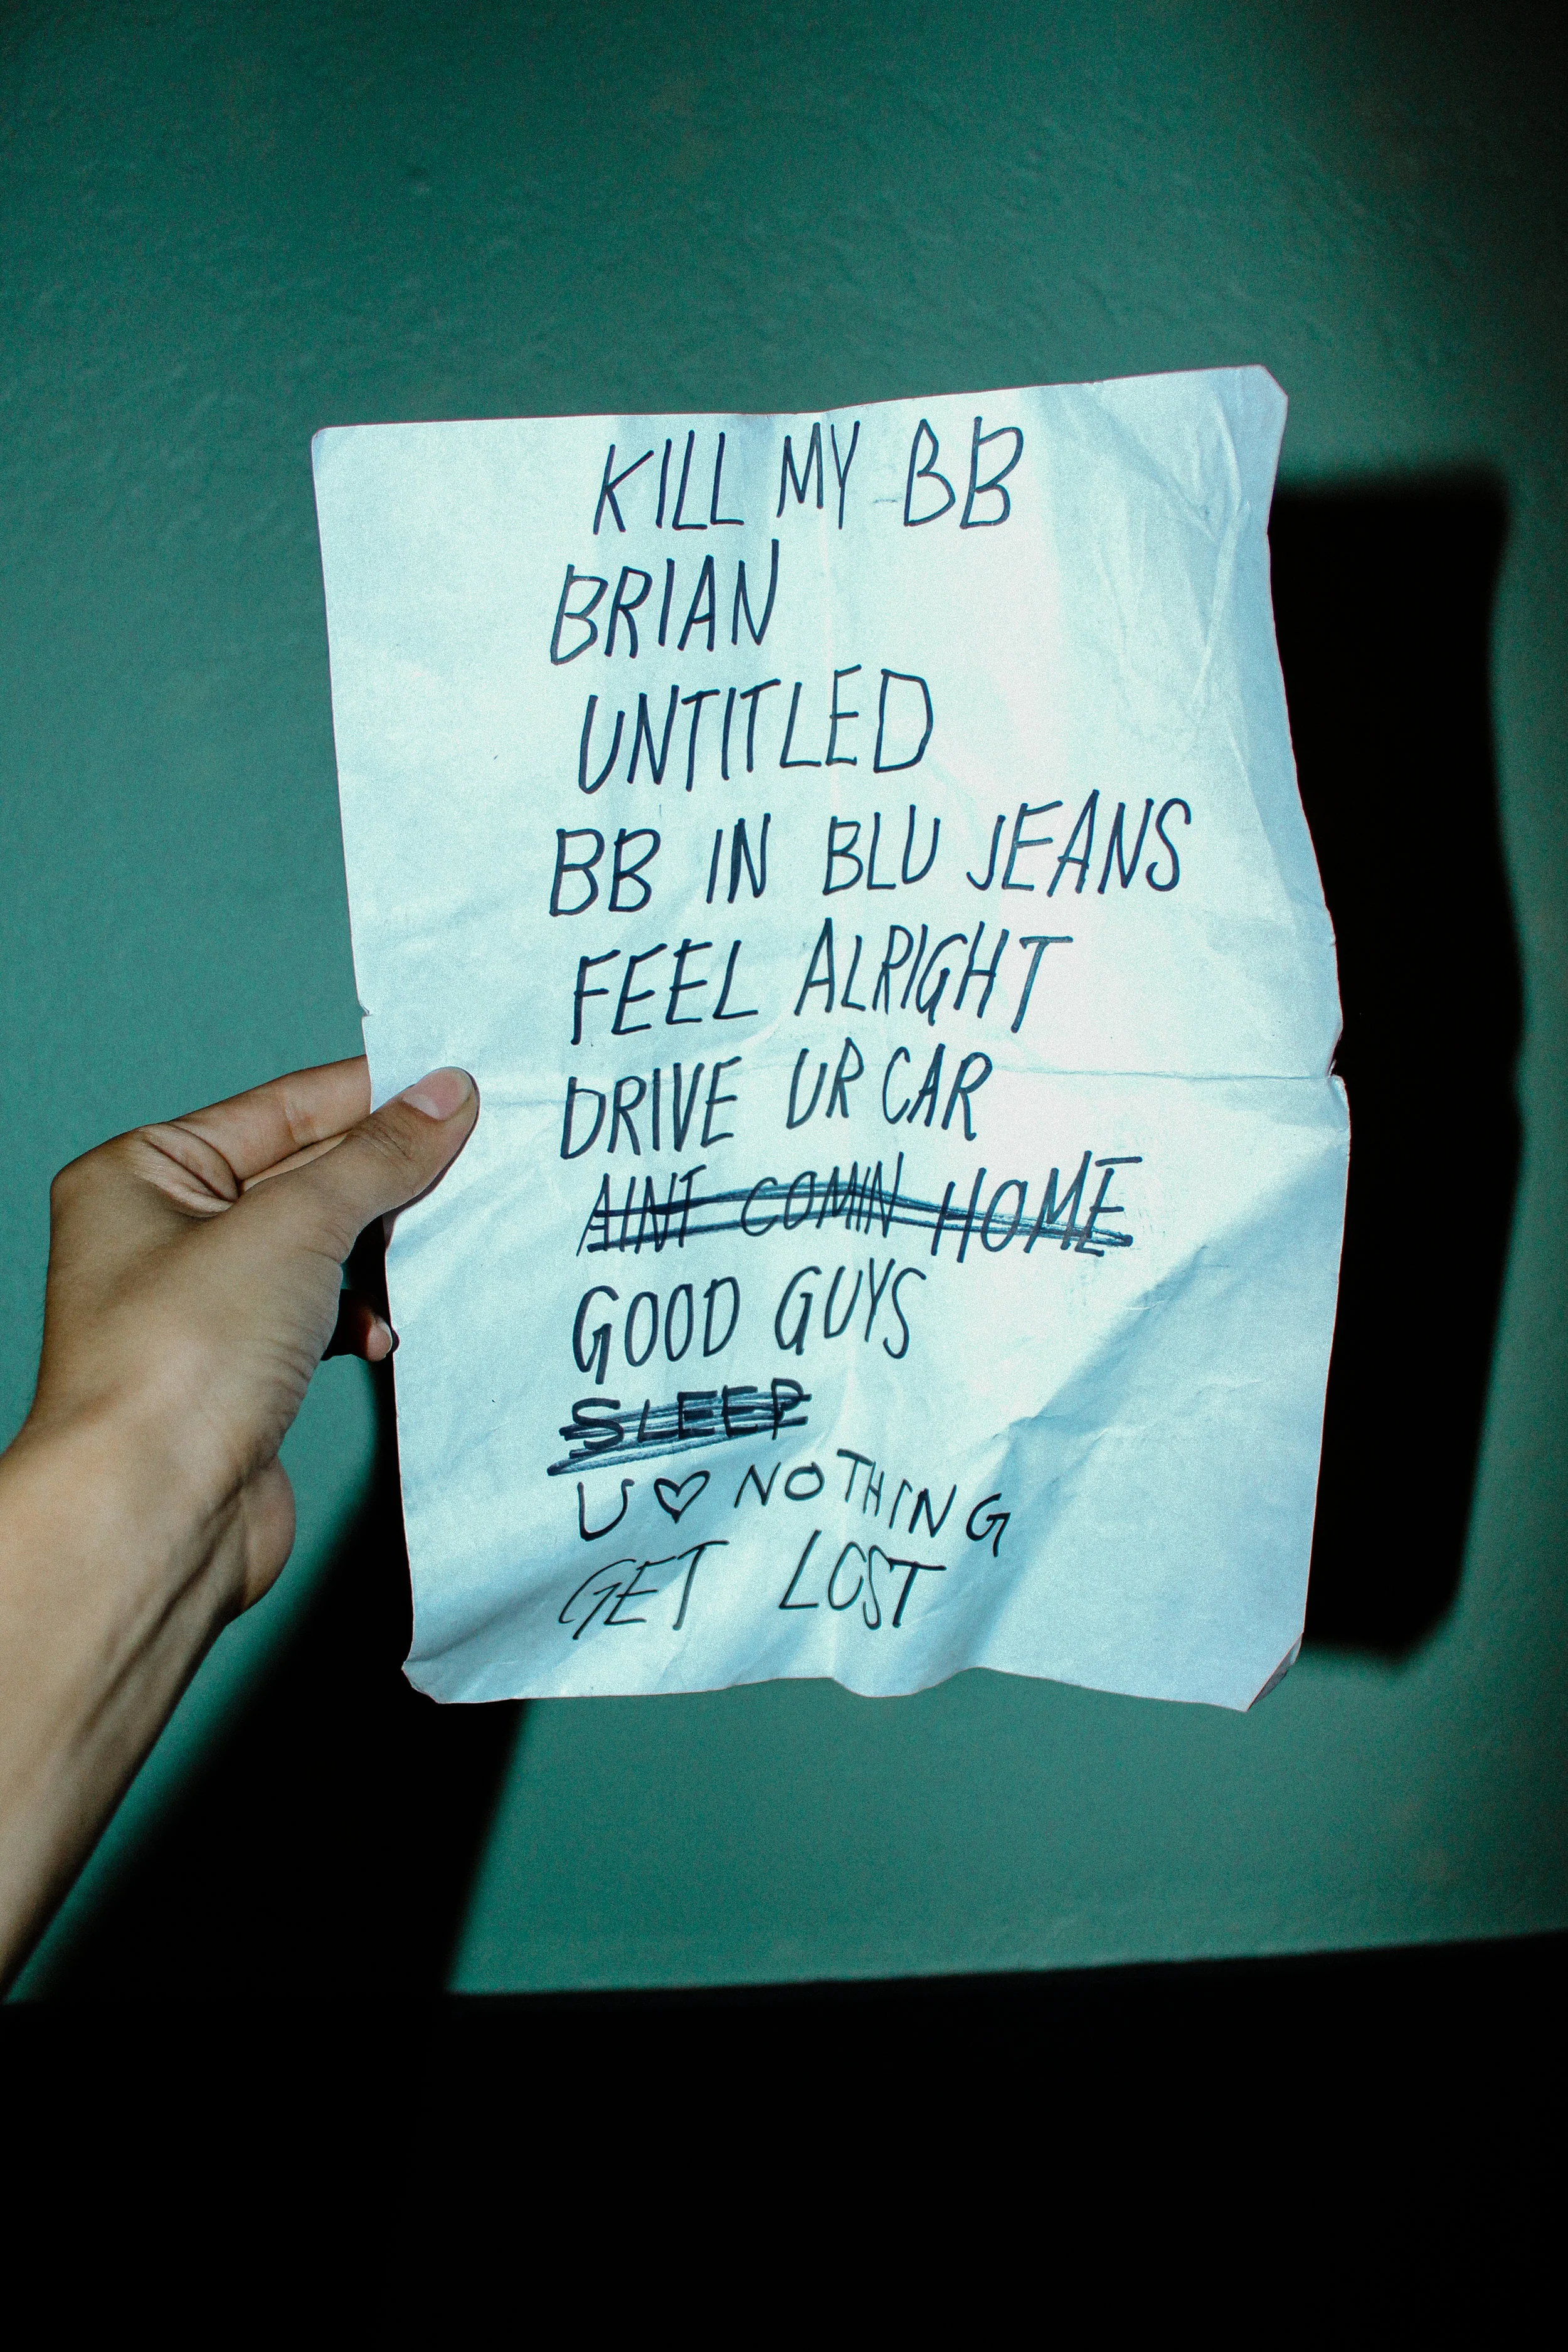 KILL MY BB
BRIAN
UNTITLED
BB IN BLU JEANS
FEEL ALRIGHT
DRIVE UR CAR
AINT COMIN HOME
GOOD GUYS
SLEEP
U ♡ NOTHING
GET LOST